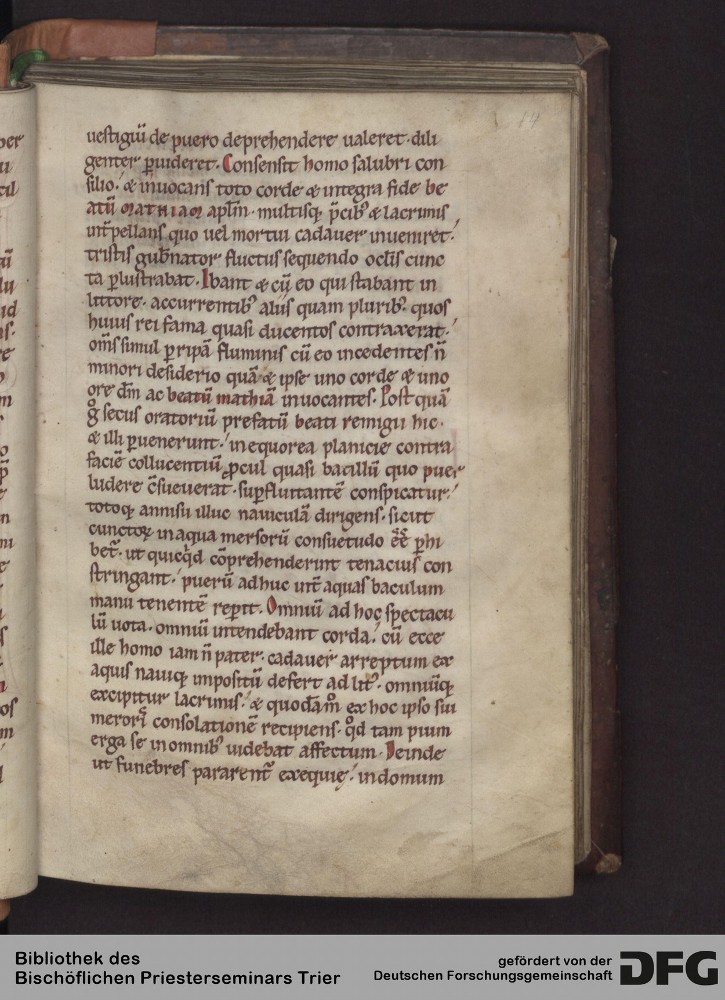 14
uestigiū de puero deprehendere ualeret· dili
genter ꝓuideret· Consensit homo salubri con
silio· & inuocans toto corde & integra fide be
atū MATHIAM apl̄m· multisq; p̄cib; & lacrimis
int̄pellans quo uel mortui cadauer inueniret·
tristis gub̄nator fluctus sequendo oclīs cunc
ta ꝑlustrabat· Ibant & cū eo qui stabant in
littore· accurrentib; aliis quam plurib; quos
huius rei fama quasi ducentos contraxerat·
om̄s simul ꝑ ripā fluminis cū eo incedentes n̄
minori desiderio quā & ipse uno corde & uno
ore dm̄ ac beatū mathiā inuocantes· Post quā
g̊ secus oratoriū prefatū beati remigii hic·
& illi ꝑuenerunt· in equorea planicie contra
faciē collucentiū ꝓcul quasi bacillū quo puer
ludere c̄sueuerat· suꝑfluitantē conspicatur·
totoq; annisu illuc nauiculā dirigens· sicut
cunctoꝝ in aqua mersorū consuetudo ēē ꝑhi
bet̄· ut quicq̇d cōprehenderint tenacius con
stringant· puerū adhuc int̄ aquas baculum
manu tenentē repperit· Omniū ad hoc spectacu
lū uota· omniū intendebant corda· cū ecce
ille homo iam n̄ pater· cadauer arreptum ex
aquis nauiq; impositū defert ad lit;· omniūq;
excipitur lacrimis· & quodam̊ ex hoc ipso sui
meroris consolationē recipiens· qd̊ tam pium
erga se in omnib; uidebat affectum· Deinde
ut funebres pararent̄ exequię· in domum
Bibliothek des
Bischöflichen Priesterseminars Trier
gefördert von der
Deutschen Forschungsgemeinschaft
DFG